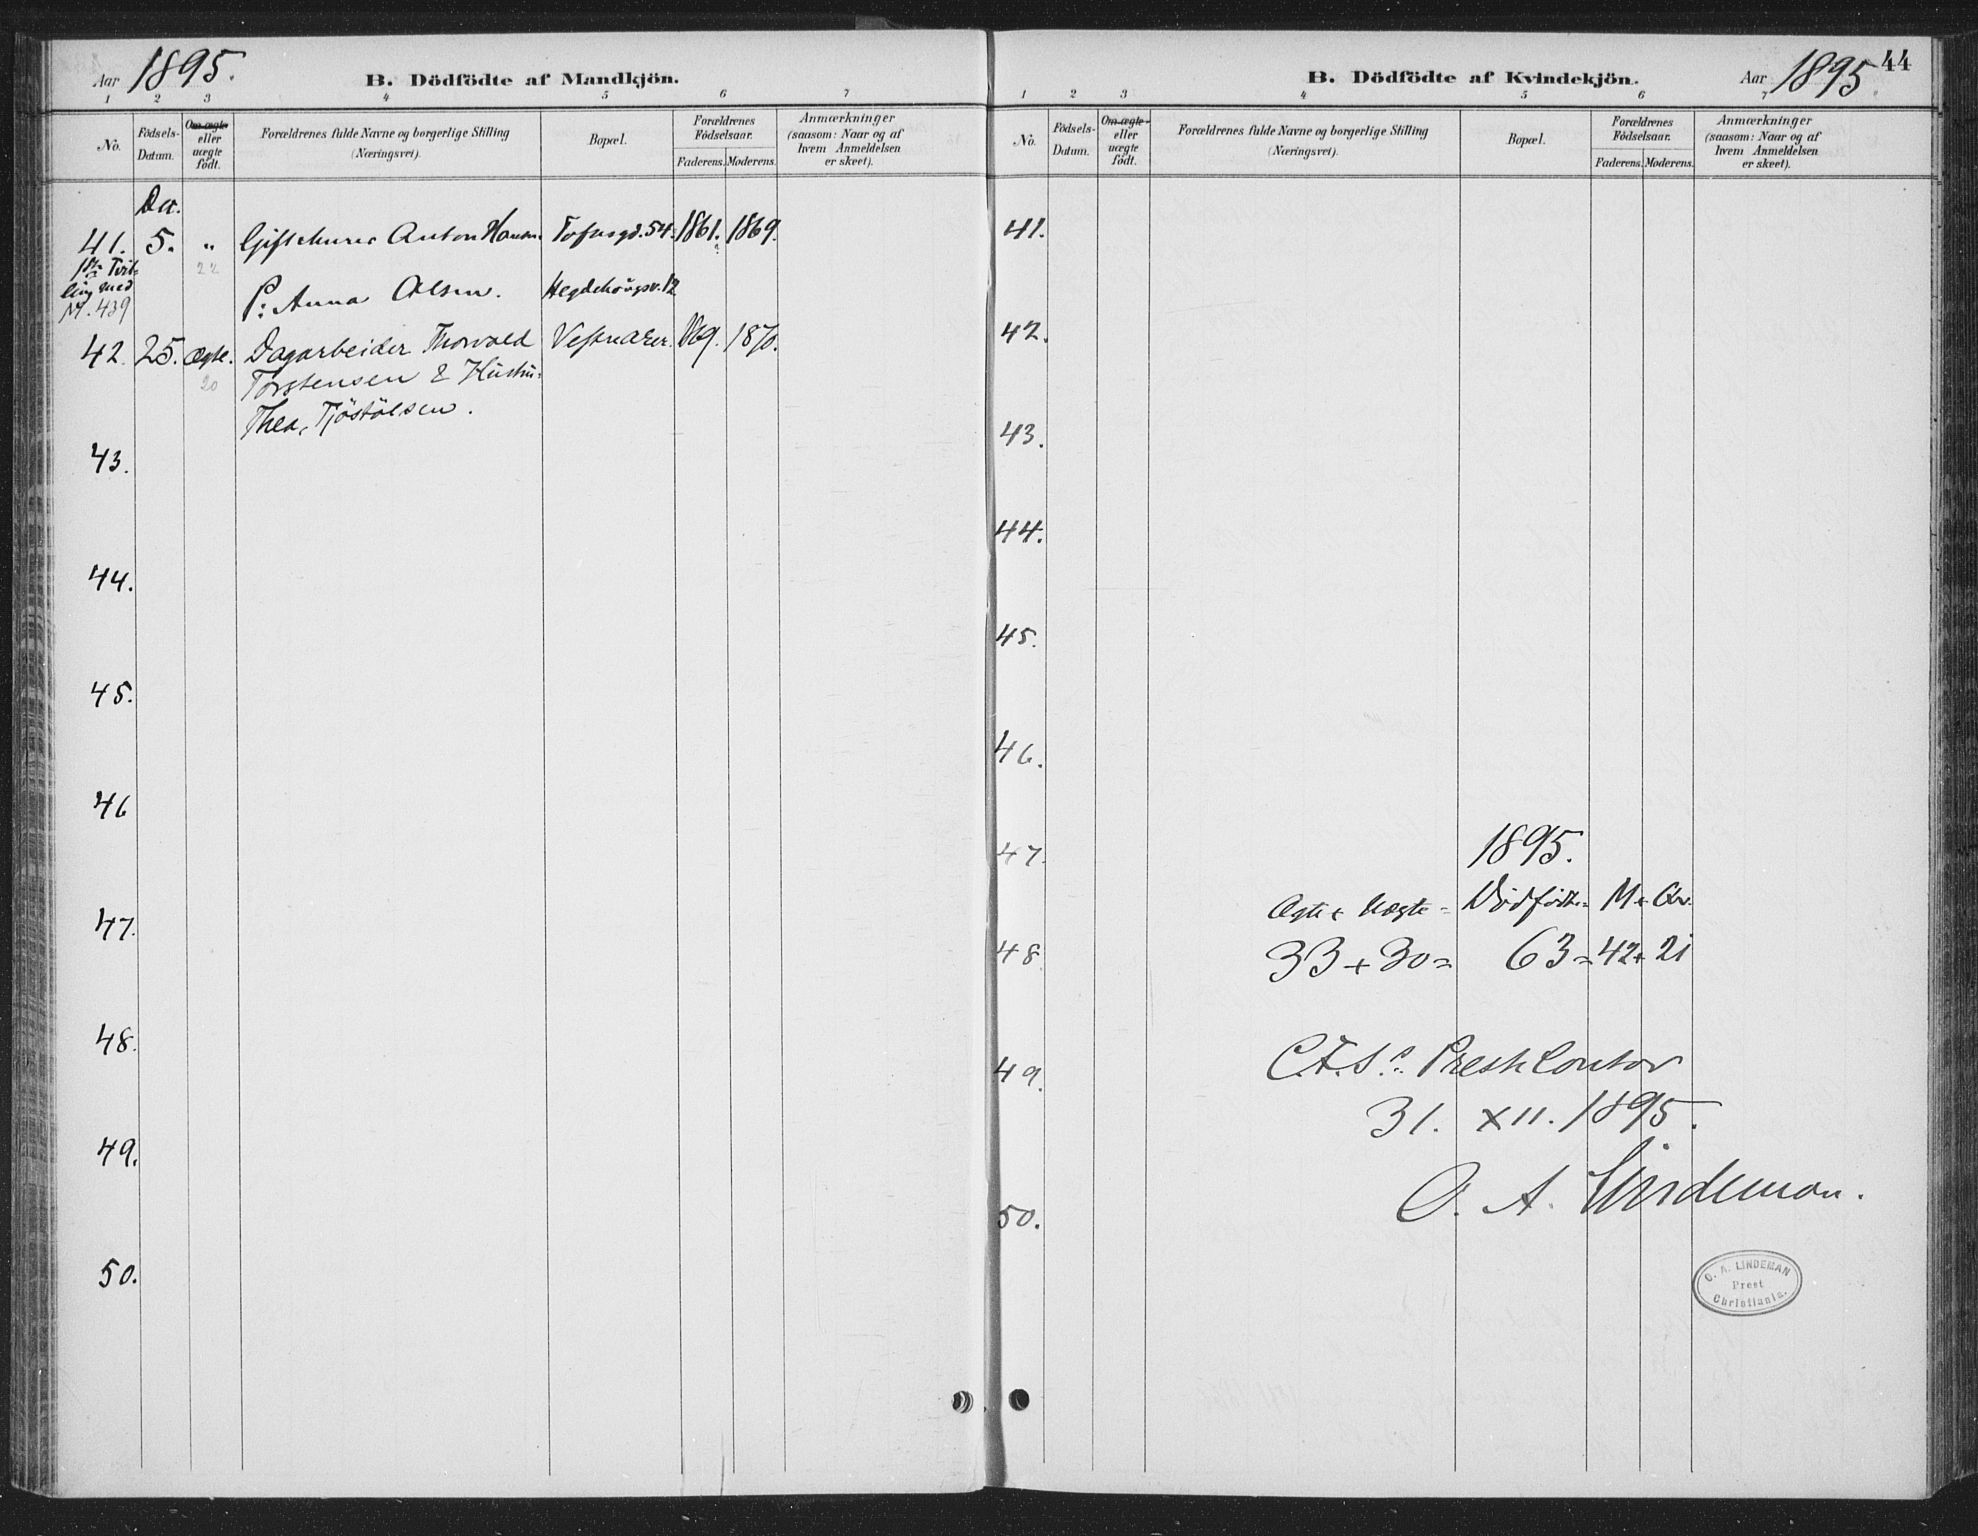 Aar 1895.
B. Dödfödte af Mandkjön.
1 2 3 4 5 6 7
No.
Födsels-
Datum.
Om ægte
eller
uægte
født.
Forældrenes fulde Navne og borgerlige Stilling
(Næringsvei).
Bopæl.
Forældrenes
Födselsaar.
Faderens. Moderens.
Anmærkninger
(saasom: Naar og af
hvem Anmeldelsen
er skeet).
De.
41. 5. " Anton Hansen 54. 1861. 1869.
22
ling med
N. 439
P: Anna Olsen. Hegdehaugsv. 12
42. 25. Ægte. Dagarbeider Thorvald 1870.
20
Torstensen & Hustru
Thea, Tjöstölsen.
43.
44.
45.
46
47.
48.
49.
50.
44
B. Dödfödte af Kvindekjön.
Aar 1895.
1 2 3 4 5 6 7
No.
Födsels-
Datum.
Om ægte
eller
uægte
født.
Forældrenes fulde Navne og borgerlige Stilling
(Næringsvei).
Bopæl.
Forældrenes
Födselsaar.
Faderens. Moderens.
Anmærkninger
(saasom: Naar og af
hvem Anmeldelsen
er skeet).
41.
42.
43.
44.
45.
46.
47.
1895.
Ægte + Uægte = Dödfödte = M + Qv.
48
33 + 30 = 63 = 42 + 21
49.
Prestkontor
31. XII. 1895.
O. A. Lindeman.
50.
O. A. LINDEMAN
Prest
Christiania.